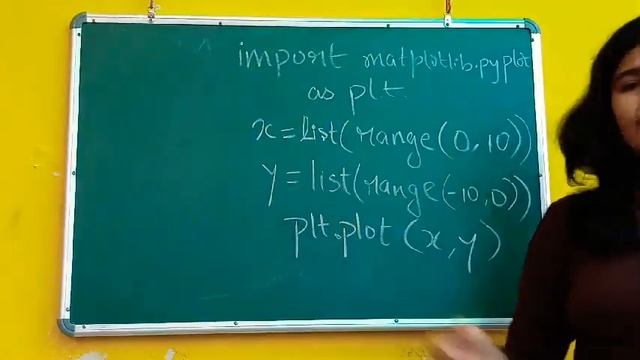 import matplotlib.pyplot
as plt.
x = list(range(0,10))
y = list(range(-10,0))
plt.plot (x,y)